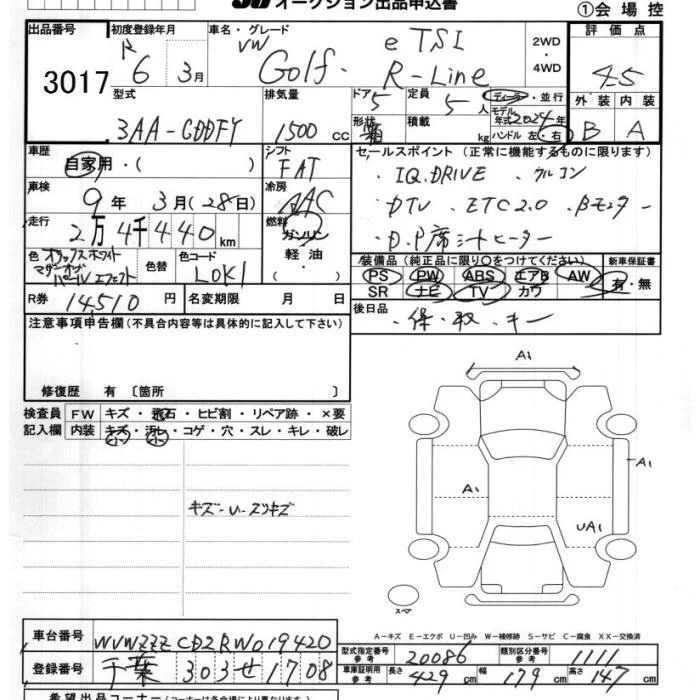 オークション出品申込書 ①会場控
出品番号 初度登録年月 車名・グレード 評価点
3017 R6 3月 VW Golf. eTSI R-Line 2WD・4WD 4.5
型式 排気量 ドア 定員 ディーラー・並行 外装 内装
3AA-CDDFY 1500cc 5 5人 モデル年式 2024年 B A
形状 箱 積載 kg ハンドル 左・右
車歴 シフト セールスポイント(正常に機能するものに限ります)
自家用・( ) FAT ・IQ.DRIVE ・クルコン
車検 冷房 ・DTV ・ETC2.0 ・Bモニター
9年 3月(28日) AAC ・D.P席シートヒーター
走行 燃料
2万4千440km ガソリン
軽油・
( )
色 オリックスホワイト マザーオブパールエフェクト 色替 色コード L0K1
装備品(純正品に限り○をつけてください) 新車保証書
PS PW ABS エアB AW 有・無
SR ナビ TV カワ
R券 14510円 名変期限 月 日
後日品
・保・取・キー
注意事項申告欄(不具合内容等は具体的に記入して下さい)
修復歴 有〔箇所 〕
検査員 FW キズ・飛石・ヒビ割・リペア跡・×要
記入欄 内装 キズ・汚レ・コゲ・穴・スレ・キレ・破レ
小 小
A1
A1
A1
UA1
キズ-U-スリキズ
スペア
車台番号 WVWZZZCDZRW019420
A-キズ E-エクボ U-凹み W-補修跡 S-サビ C-腐食 XX-交換済
型式指定番号 参考 20086 類別区分番号 参考 1111
登録番号 千葉 303 せ 1708
車庫証明用 参考 長さ 429cm 幅 179cm 高さ 147cm
希望出品コーナー(コーナーは各会場により異なります)